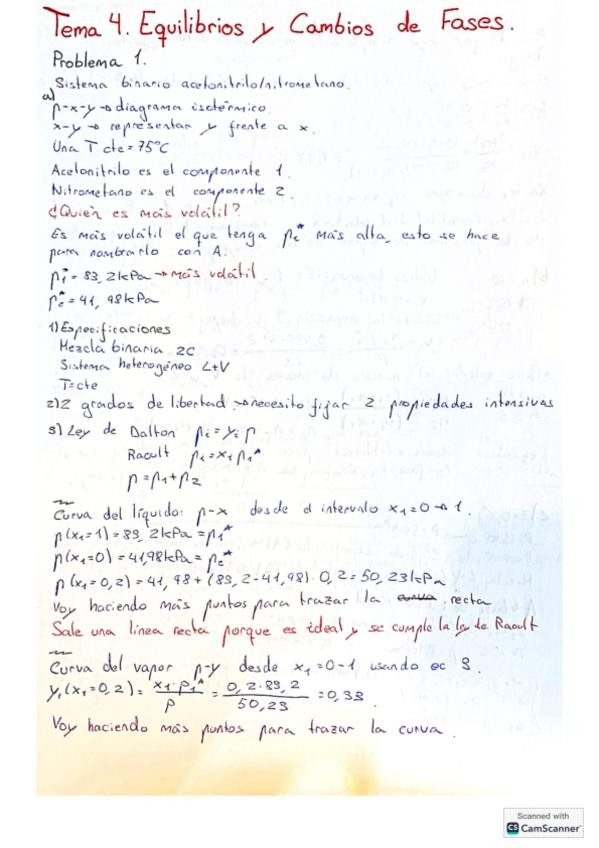 Tema 4. Equilibrios y Cambios de Fases.
Problema 1.
Sistema binario acetonitrilo/nitrometano.
a)
p-x-y → diagrama isotérmico.
x-y → representar y frente a x.
Una T cte = 75°C
Acetonitrilo es el componente 1.
Nitrometano es el componente 2.
¿Quién es más volátil?
Es más volátil el que tenga pᵢ* más alta, esto se hace
para nombrarlo con A.
p₁* = 83,2kPa → más volátil.
p₂* = 41,98kPa
1) Especificaciones
Mezcla binaria 2C
Sistema heterogéneo L+V
T=cte
2) 2 grados de libertad → necesito fijar 2 propiedades intensivas
3) Ley de Dalton pᵢ = yᵢ p
Raoult pᵢ = x₁ p₁*
p = p₁ + p₂
Curva del líquido: p-x desde el intervalo x₁ = 0 → 1.
p(x₁=1) = 83,2kPa = p₁*
p(x₁=0) = 41,98kPa = p₂*
p(x₁=0,2) = 41,98 + (83,2-41,98)·0,2 = 50,23kPa
Voy haciendo más puntos para trazar la curva recta
Sale una línea recta porque es ideal y se cumple la ley de Raoult
Curva del vapor p-y desde x₁=0-1 usando ec 3.
y₁(x₁=0,2) = x₁·p₁* / p = 0,2·83,2 / 50,23 = 0,33
Voy haciendo más puntos para trazar la curva.
Scanned with
CS CamScanner